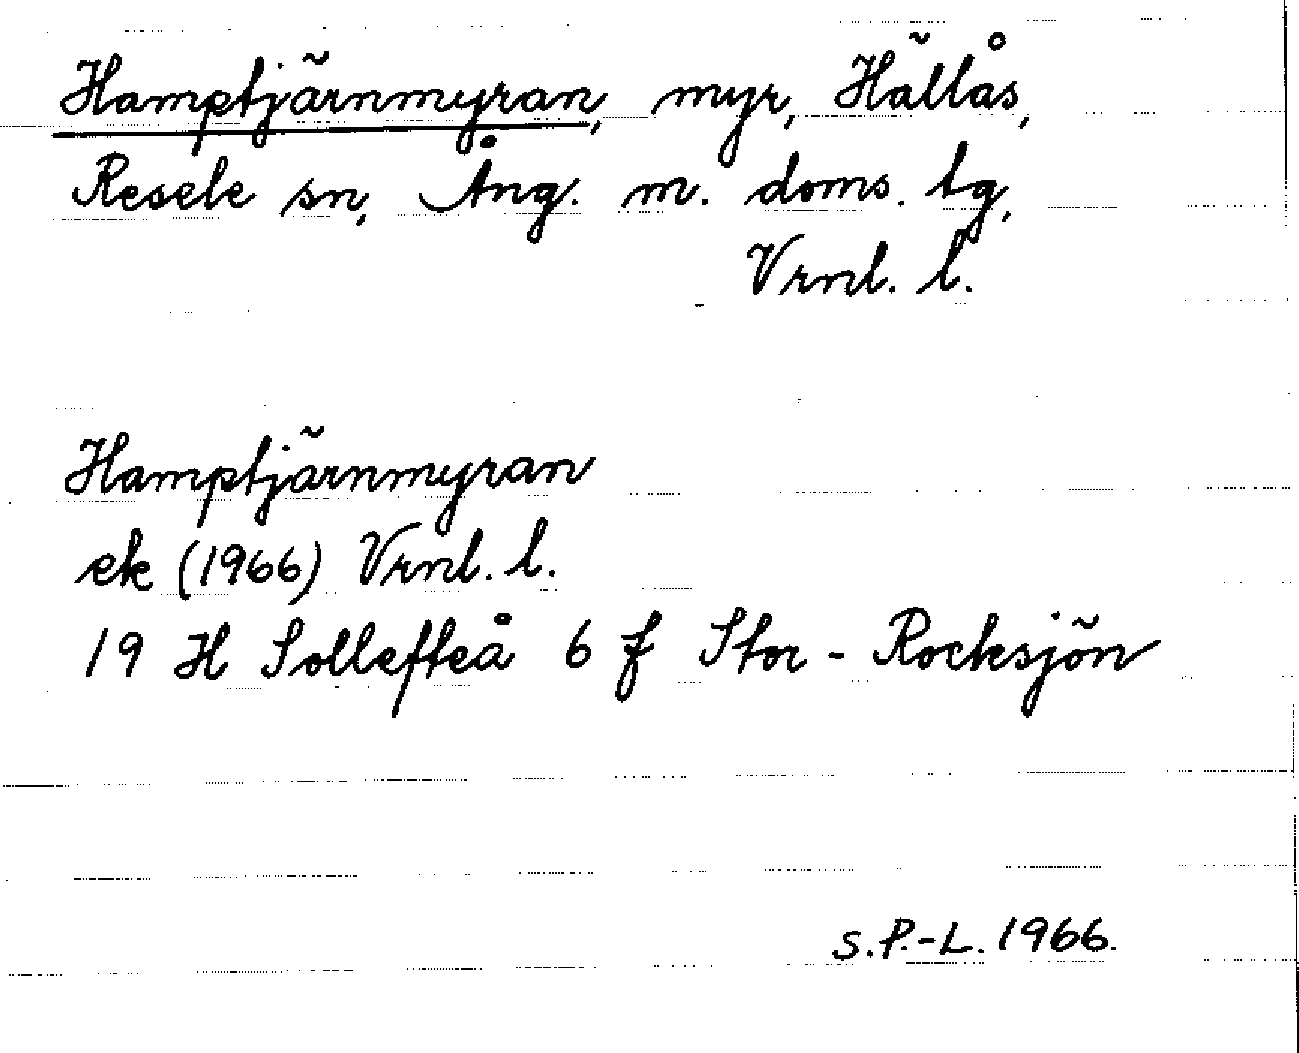 Hamptjärnmyran, myr, Hällås,
Resele sn, Ång. m. doms. tg,
Vrnl. l.
Hamptjärnmyran
ek (1966) Vrnl. l.
19 H Sollefteå 6 f Stor-Rocksjön
S.P.-L. 1966.